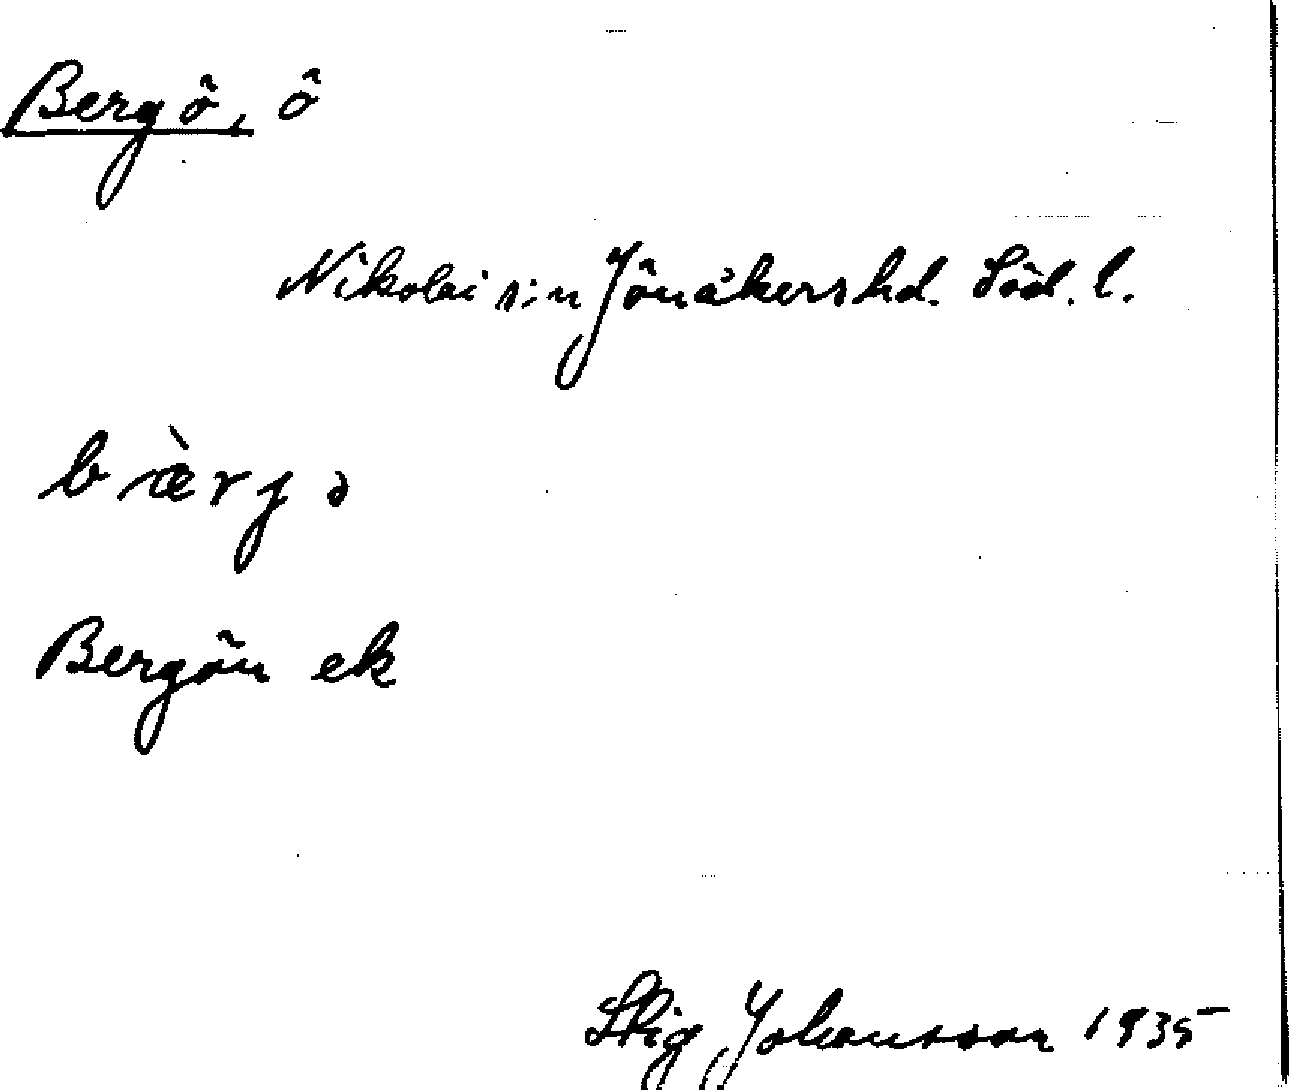 Bergö, ö
Nikolai s:n Jönåkers hd. Söd. l.
bæ̀rjə
Bergön ek
Stig Johansson 1935